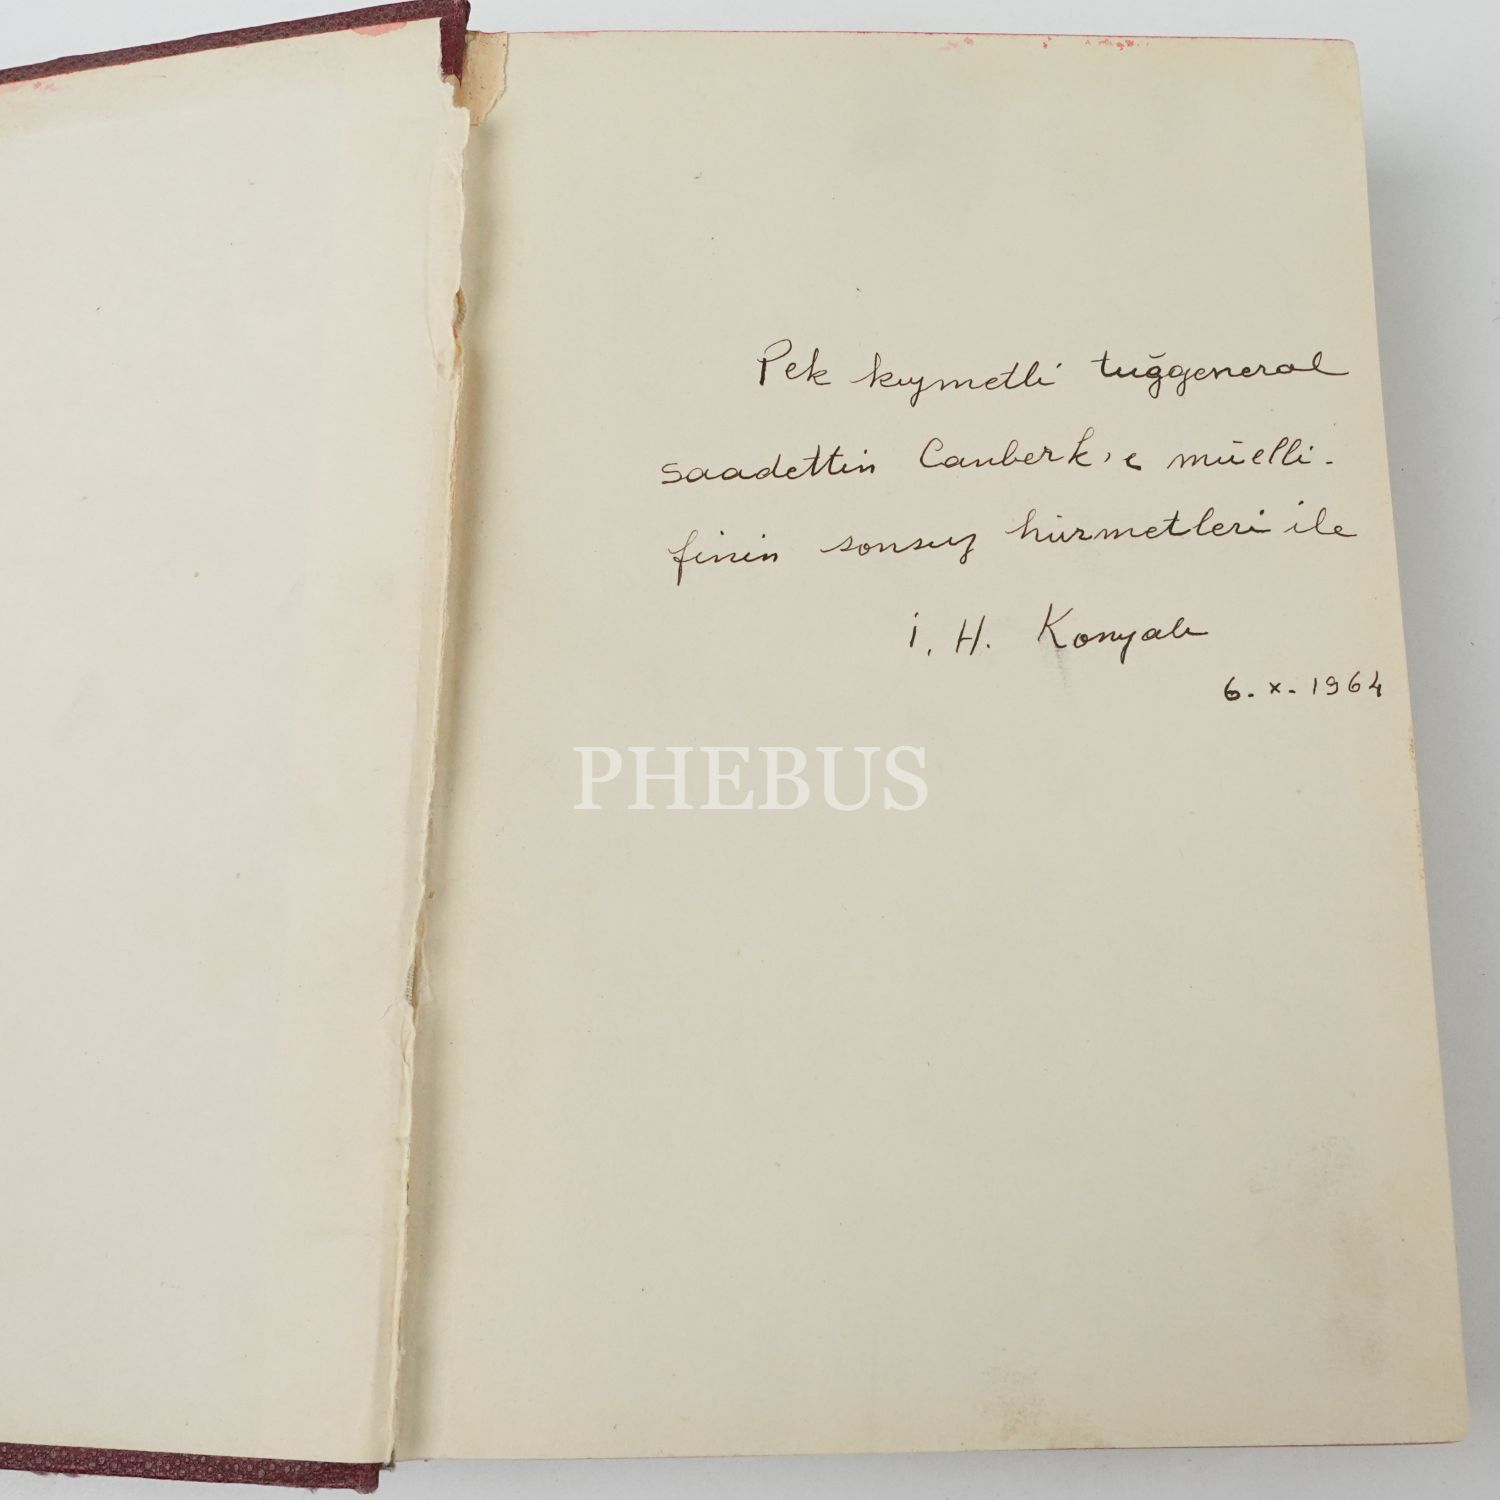 Pek kıymetli tuğgeneral
saadettin Canberk'e müelli-
finin sonsuz hürmetleri ile
İ. H. Konyalı
6. x. 1964
PHEBUS